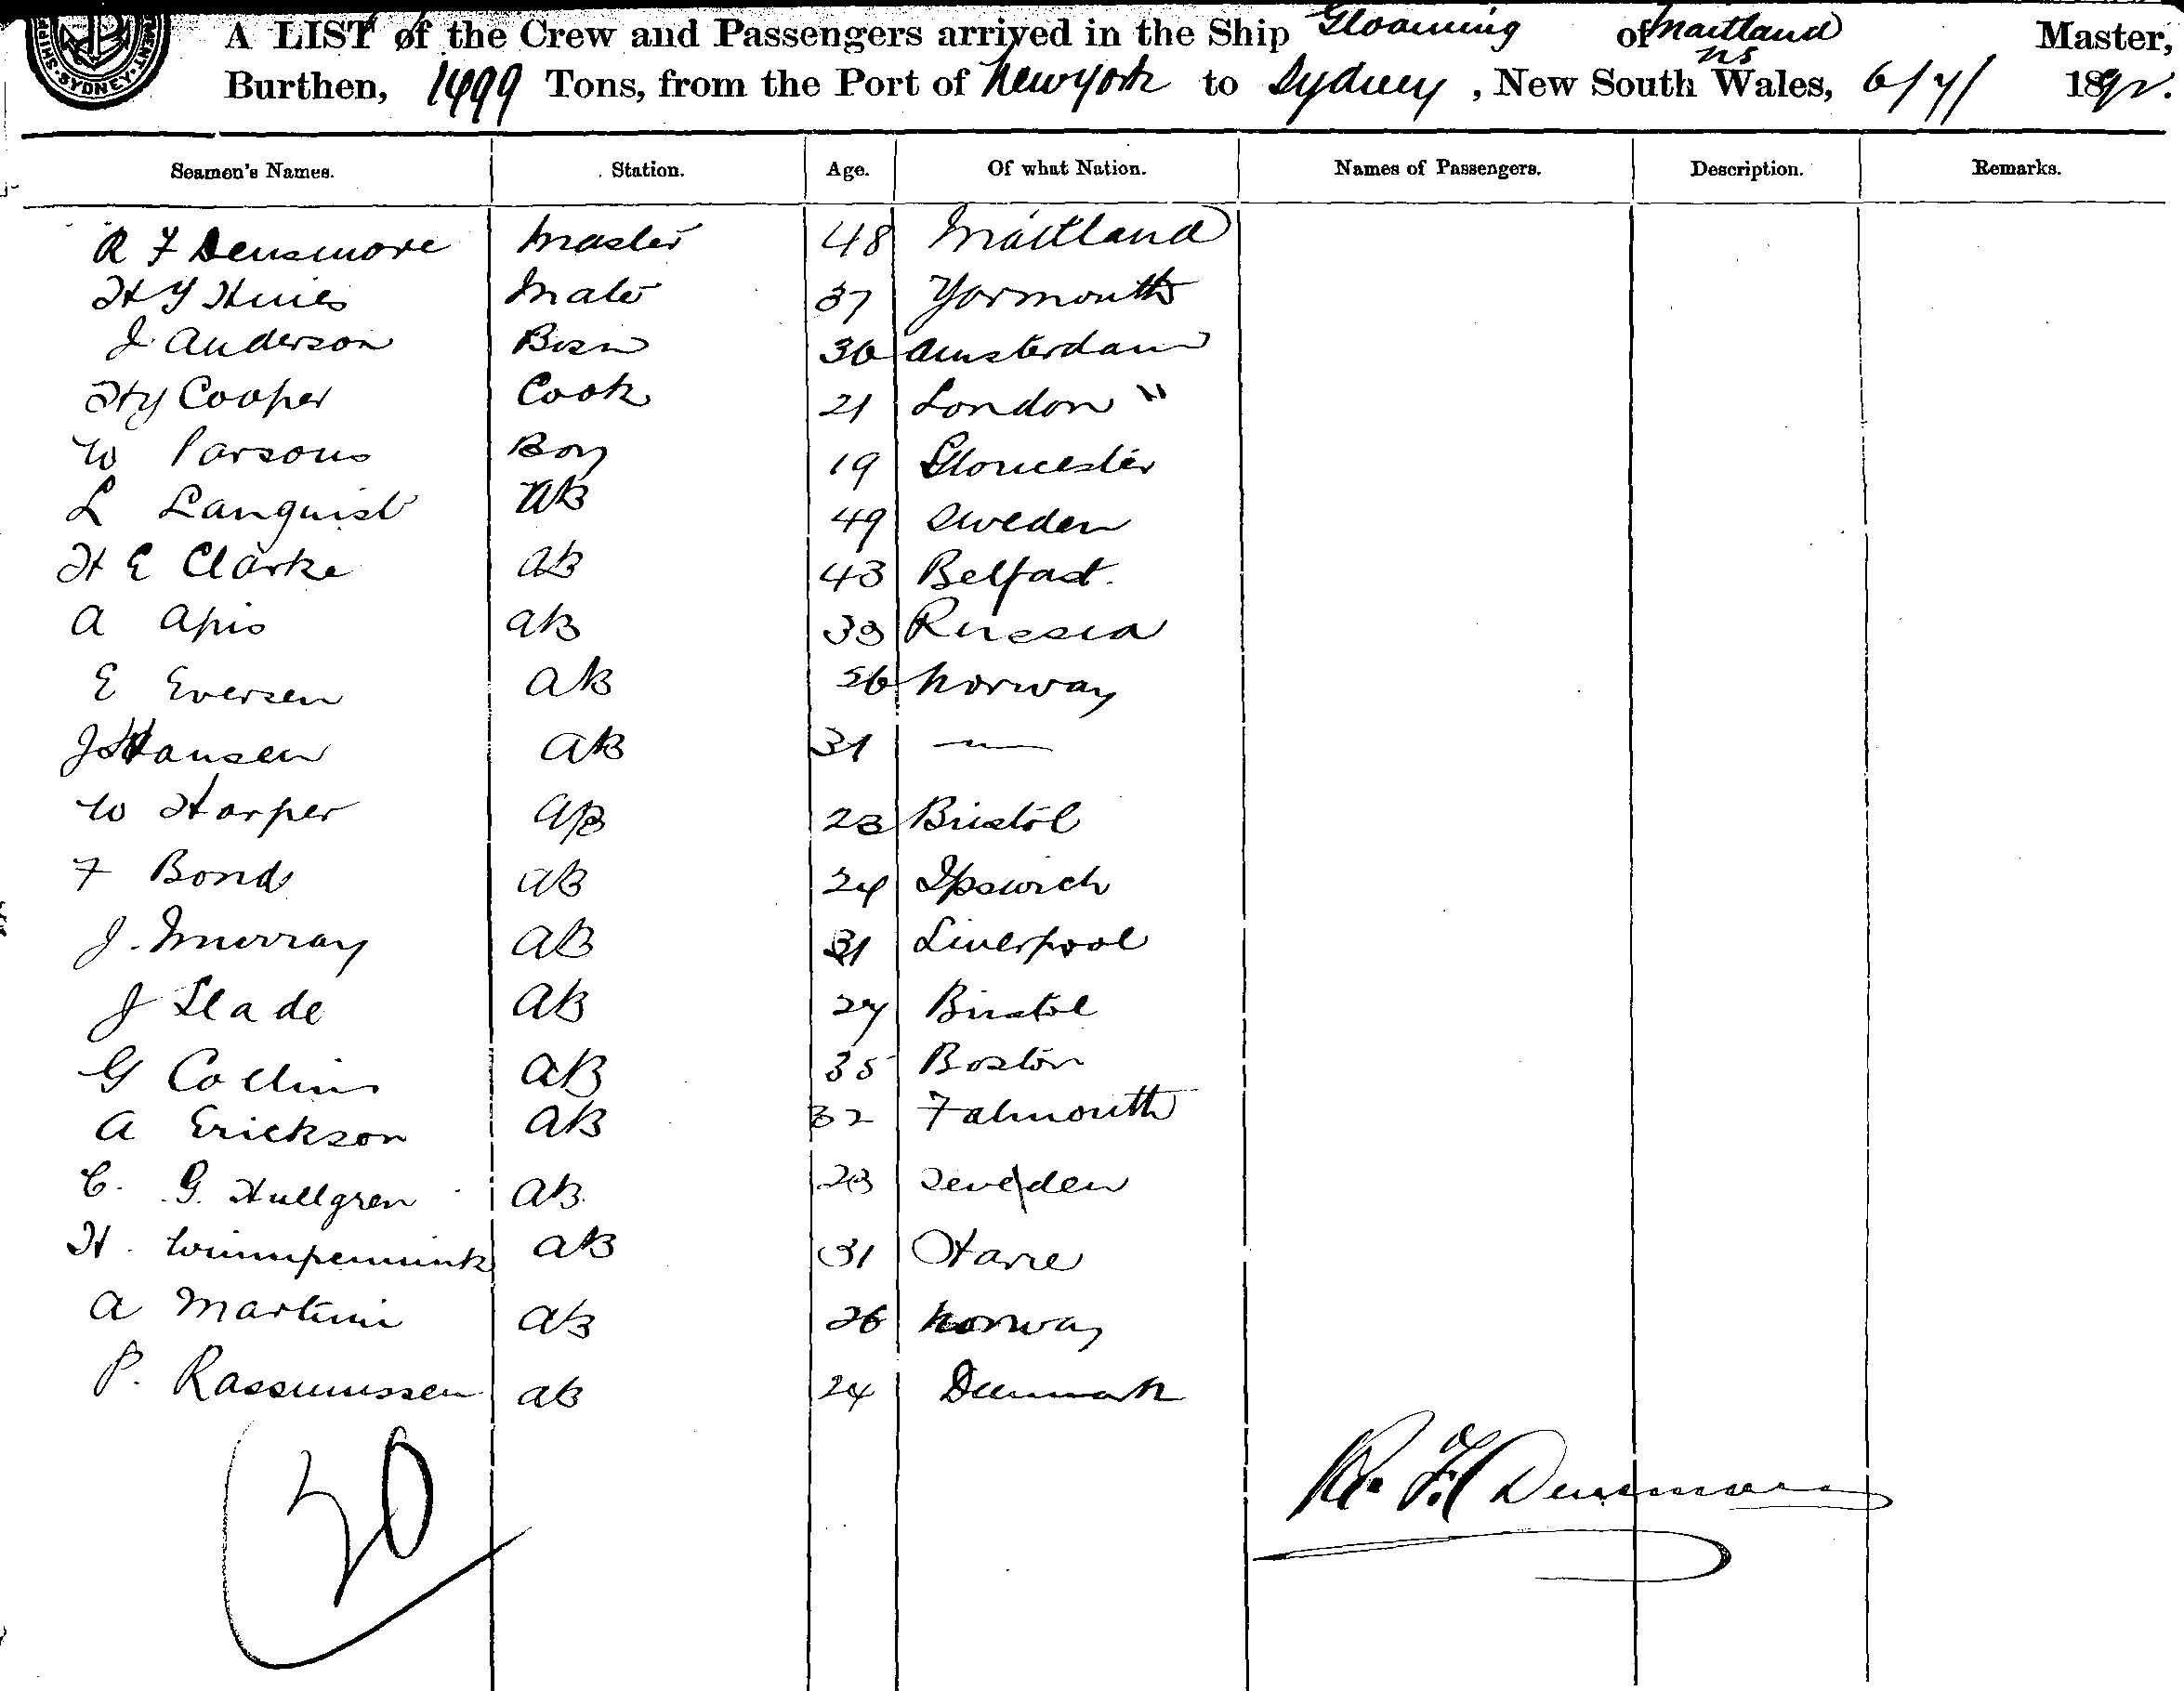 A LIST of the Crew and Passengers arrived in the Ship Gloaming of Maitland NS Master,
Burthen, 1499 Tons, from the Port of New York to Sydney, New South Wales, 6/7/ 1892.
Seamen's Names. Station. Age. Of what Nation. Names of Passengers. Description. Remarks.
R F Densmore Master 48 Maitland
H Y Hines Mate 37 Yarmouth
J Anderson Bosn 36 Amsterdam
Hy Cooper Cook 21 London "
W Parsons Boy 19 Gloucester
L Lanquist AB 49 Sweden
H E Clarke AB 43 Belfast.
A Apis AB 33 Russia
E Eversen AB 26 Norway
J Hansen AB 31 —
W Harper AB 23 Bristol
F Bond AB 24 Ipswich
J. Murray AB 31 Liverpool
J Slade AB 27 Bristol
G Collins AB 35 Boston
A Erickson AB 32 Falmouth
C. G. Hullgren AB 23 Sweden
H. AB 31 Havre
A Martini AB 26 Norway
P. Rassmussen AB 24 Denmark
20
R. F. Densmore